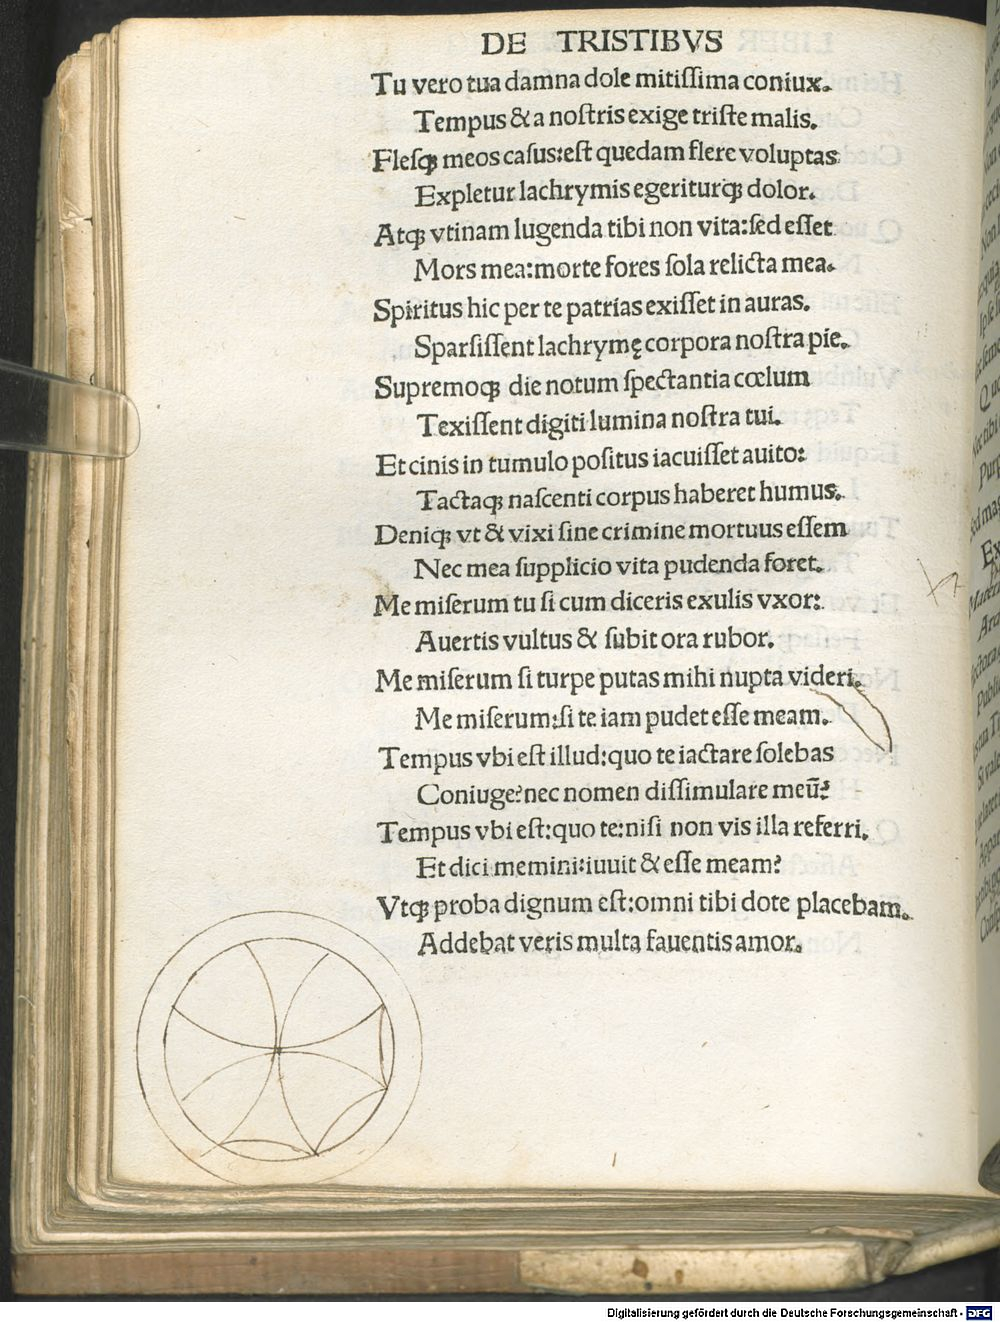 DE TRISTIBVS
Tu vero tua damna dole mitiſſima coniux.
Tempus & a noſtris exige triſte malis.
Fleſqꝫ meos caſus:eſt quedam flere voluptas:
Expletur lachrymis egeriturqꝫ dolor.
Atqꝫ vtinam lugenda tibi non vita:ſed eſſet
Mors mea:morte fores ſola relicta mea.
Spiritus hic per te patrias exiſſet in auras.
Sparſiſſent lachrymę corpora noſtra pie.
Supremoqꝫ die notum ſpectantia cœlum
Texiſſent digiti lumina noſtra tui.
Et cinis in tumulo poſitus iacuiſſet auito:
Tactaqꝫ naſcenti corpus haberet humus.
Deniqꝫ vt & vixi ſine crimine mortuus eſſem
Nec mea ſupplicio vita pudenda foret.
Me miſerum tu ſi cum diceris exulis vxor:
Auertis vultus & ſubit ora rubor.
Me miſerum ſi turpe putas mihi nupta videri.
Me miſerum:ſi te iam pudet eſſe meam.
Tempus vbi eſt illud:quo te iactare ſolebas
Coniuge?nec nomen diſſimulare meū?
Tempus vbi eſt:quo te:niſi non vis illa referri.
Et dici memini:iuuit & eſſe meam?
Vtqꝫ proba dignum eſt:omni tibi dote placebam.
Addebat veris multa fauentis amor.
Digitalisierung gefördert durch die Deutsche Forschungsgemeinschaft - DFG